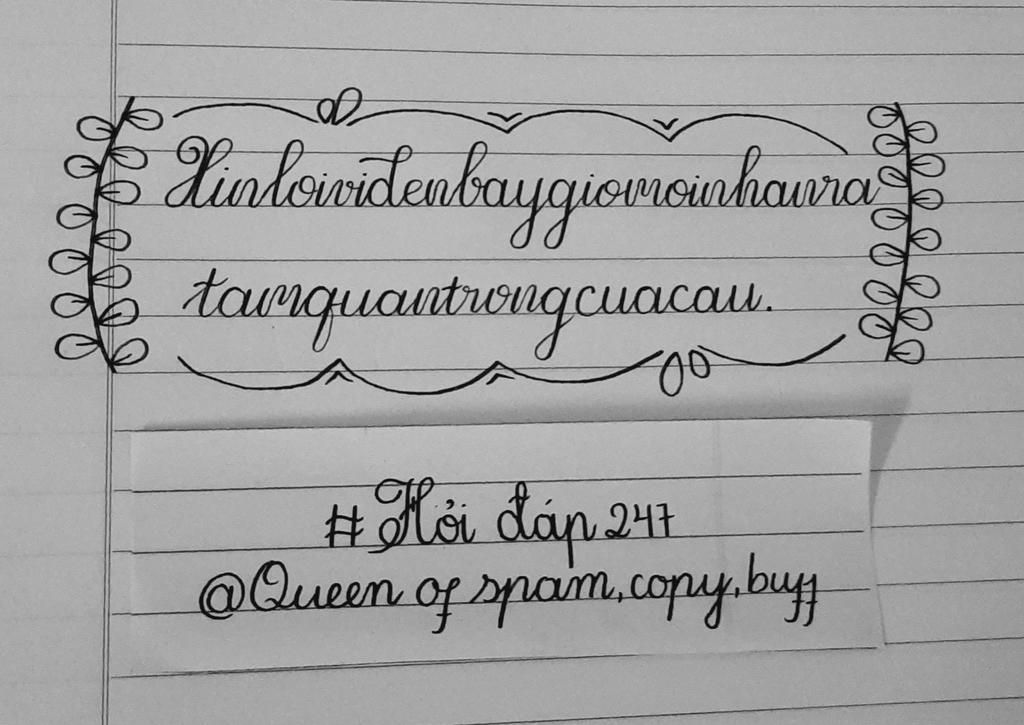 Xinloividenbaygiomoinhanra
tamquantrongcuacau.
#Hỏi đáp 247
@Queen of spam, copy, buff